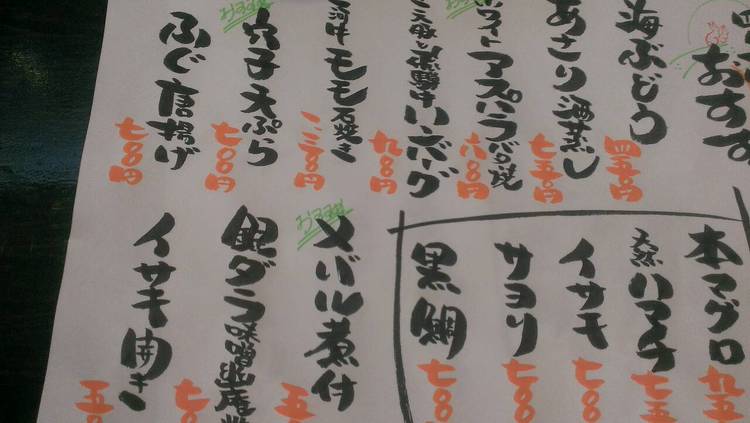 おすす
海ぶどう
四五〇円
あさり酒蒸し
七五〇円
ホワイトアスパラバター焼
六八〇円
天豚と黒騎牛ハンバーグ
九八〇円
河牛モモ石焼き
一二八〇円
おススメ
穴子天ぷら
七〇〇円
ふぐ唐揚げ
七〇〇円
本マグロ
九五
天然ハマチ
七五
イサキ
七〇〇
サヨリ
七〇〇
黒鯛
七〇〇
おススメ
メバル煮付
五
銀ダラ味噌幽庵
七〇
イサキ開き
五〇